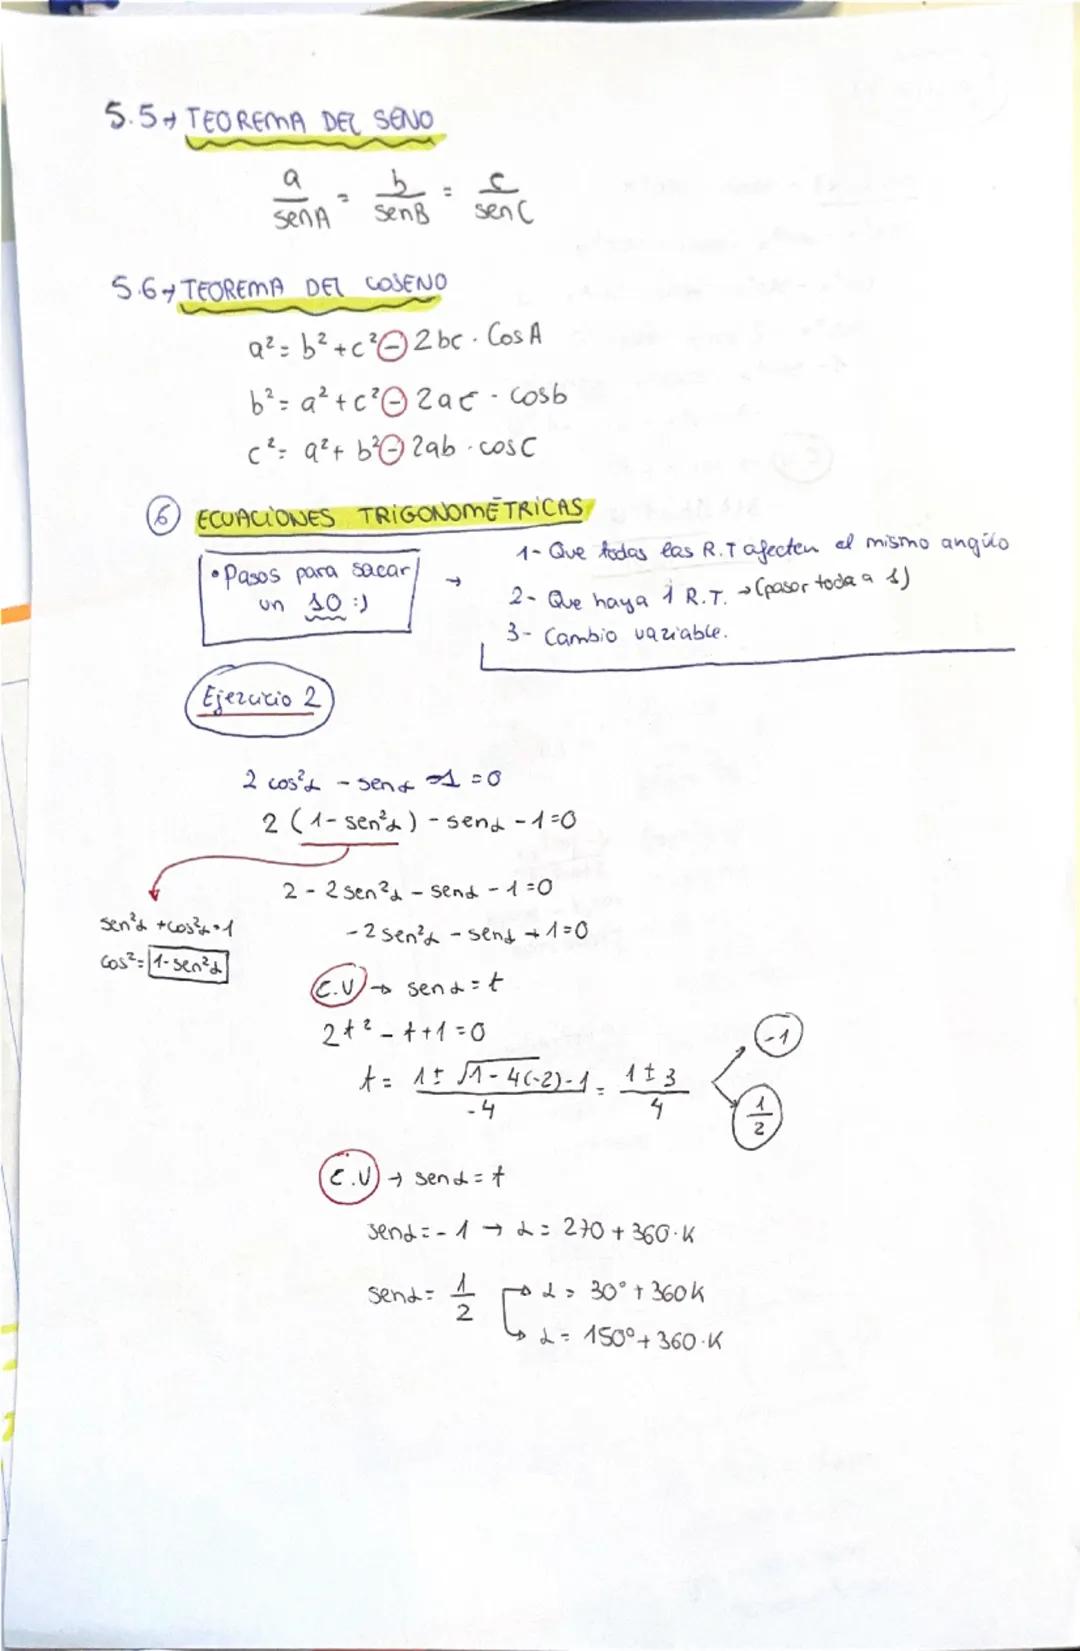 5.5→ TEOREMA DEL SENO
a/senA = b/senB = c/senC
5.6→ TEOREMA DEL COSENO
a² = b² + c² - 2bc · Cos A
b² = a² + c² - 2ac · cosb
c² = a² + b² - 2ab · cos C
6 ECUACIONES TRIGONOMÉTRICAS
• Pasos para sacar un 10 :) →
1- Que todas las R.T afecten el mismo angulo
2- Que haya 1 R.T. → (pasar toda a 1)
3- Cambio variable.
Ejercicio 2
2 cos²α - senα -1 = 0
2 (1 - sen²α) - senα - 1 = 0
2 - 2 sen²α - senα - 1 = 0
sen²α + cos²α = 1
-2 sen²α - senα + 1 = 0
cos² = 1 - sen²α
C.V → senα = t
2t² - t + 1 = 0
t = 1 ± √1 - 4(-2)·1 / -4 = 1 ± 3 / 4
-1
1/2
C.V → senα = t
senα = -1 → α = 270 + 360·K
senα = 1/2 → α = 30° + 360K
→ α = 150° + 360·K